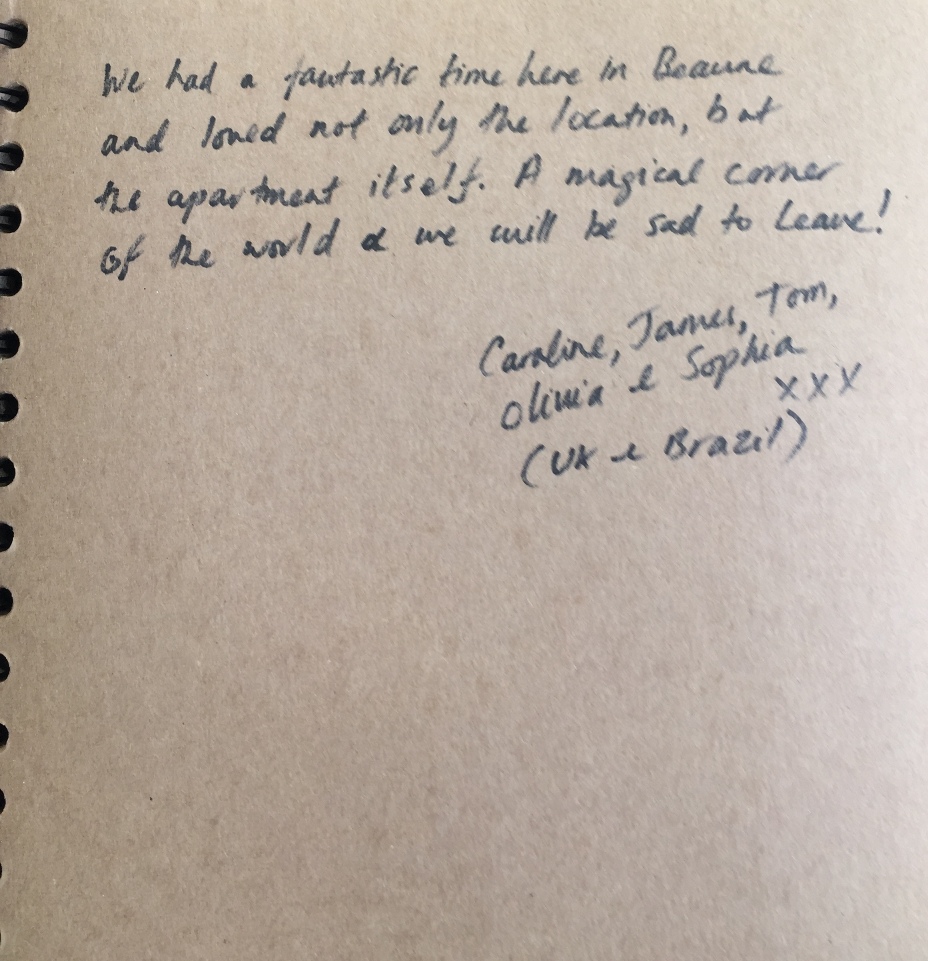 We had a fantastic time here in Beaune
and loved not only the location, but
the apartment itself. A magical corner
of the world & we will be sad to leave!
Caroline, James, Tom,
Olivia & Sophia
xxx
(UK & Brazil)